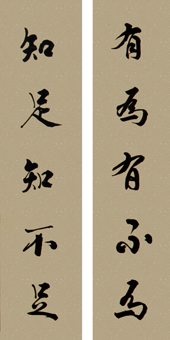 有為有不為
知足知不足